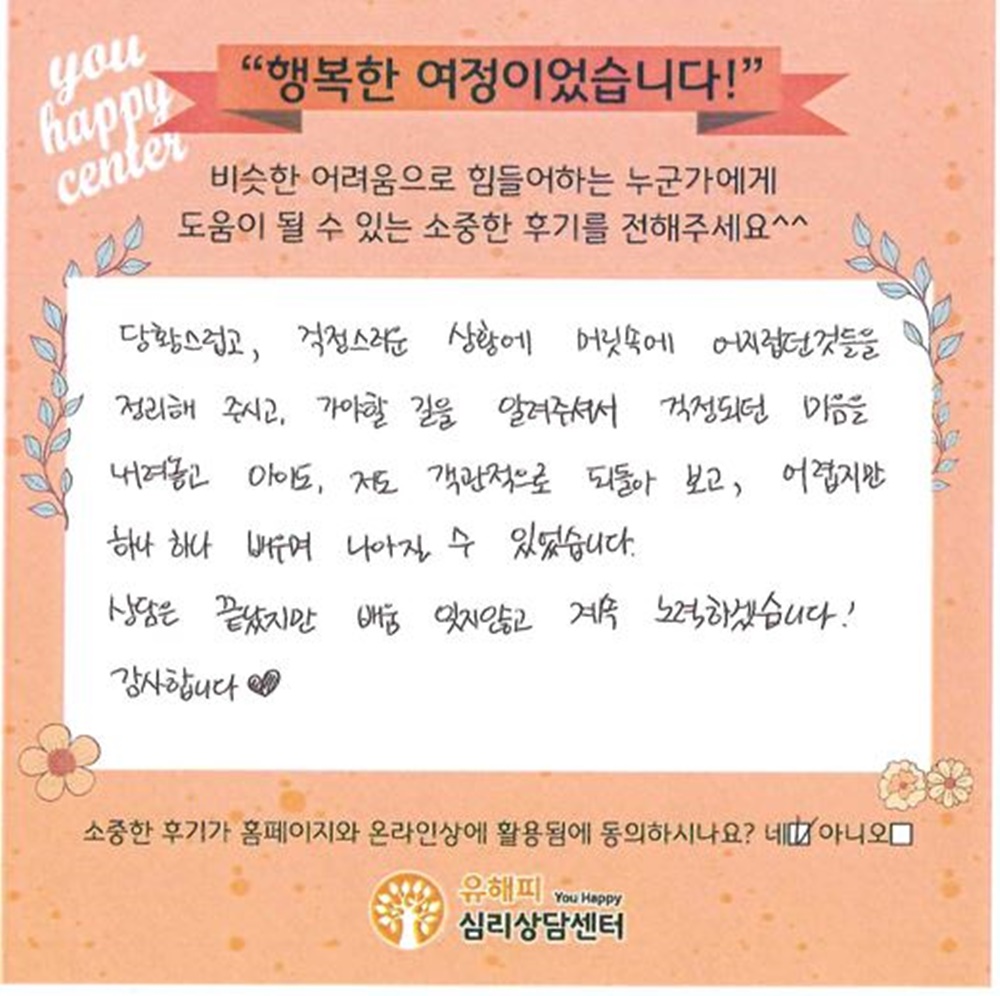 you
happy
center
“행복한 여정이었습니다!”
비슷한 어려움으로 힘들어하는 누군가에게
도움이 될 수 있는 소중한 후기를 전해주세요^^
당황스럽고, 걱정스러운 상황에 머릿속에 어지럽던것들을
정리해 주시고, 가야할 길을 알려주셔서 걱정되던 마음을
내려놓고 아이도, 저도 객관적으로 되돌아 보고, 어렵지만
하나 하나 배우며 나아질 수 있었습니다.
상담은 끝났지만 배움 잊지않고 계속 노력하겠습니다!
감사합니다
소중한 후기가 홈페이지와 온라인상에 활용됨에 동의하시나요? 네☑ 아니오□
유해피 You Happy
심리상담센터